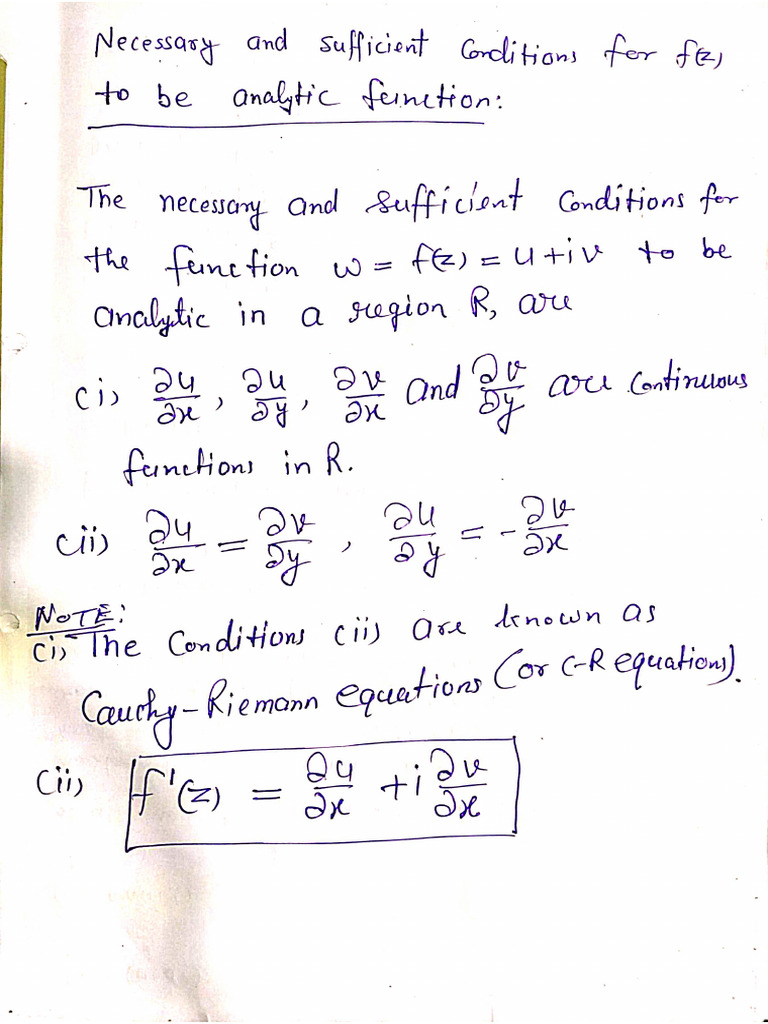 Necessary and sufficient Conditions for f(z)
to be analytic function:
The necessary and sufficient Conditions for
the function w = f(z) = u + iv to be
analytic in a region R, are
(i) ∂u/∂x, ∂u/∂y, ∂v/∂x and ∂v/∂y are Continuous
functions in R.
(ii) ∂u/∂x = ∂v/∂y, ∂u/∂y = -∂v/∂x
NOTE:
(i) The Conditions (ii) are known as
Cauchy-Riemann equations (or C-R equations).
(ii) f'(z) = ∂u/∂x + i ∂v/∂x